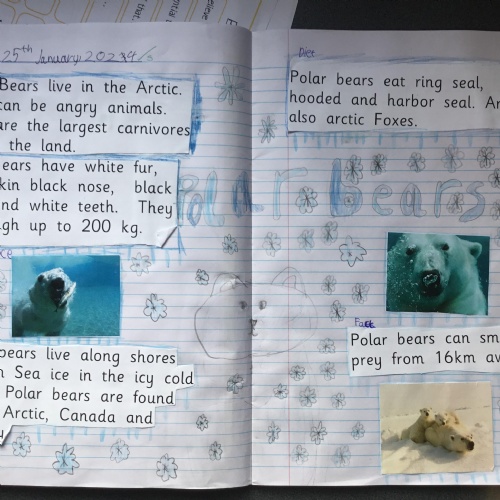 25th January 2024
Bears live in the Arctic.
can be angry animals.
are the largest carnivores
the land.
ears have white fur,
kin black nose, black
nd white teeth. They
gh up to 200 kg.
ce
bears live along shores
n Sea ice in the icy cold
Polar bears are found
Arctic, Canada and
Polar Bears
Diet
Polar bears eat ring seal,
hooded and harbor seal. Ar
also arctic Foxes.
Fact
Polar bears can sm
prey from 16km aw